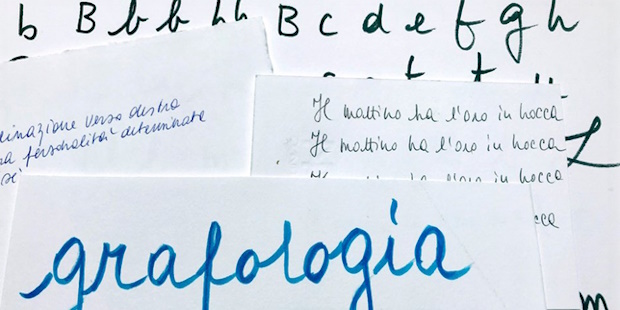 b B b b hh B c d e f g h
inazione verso destra
a personalità determinate
Il mattino ha l'oro in bocca
Il mattino ha l'oro in bocca
L
bocca
cca
grafologia
m